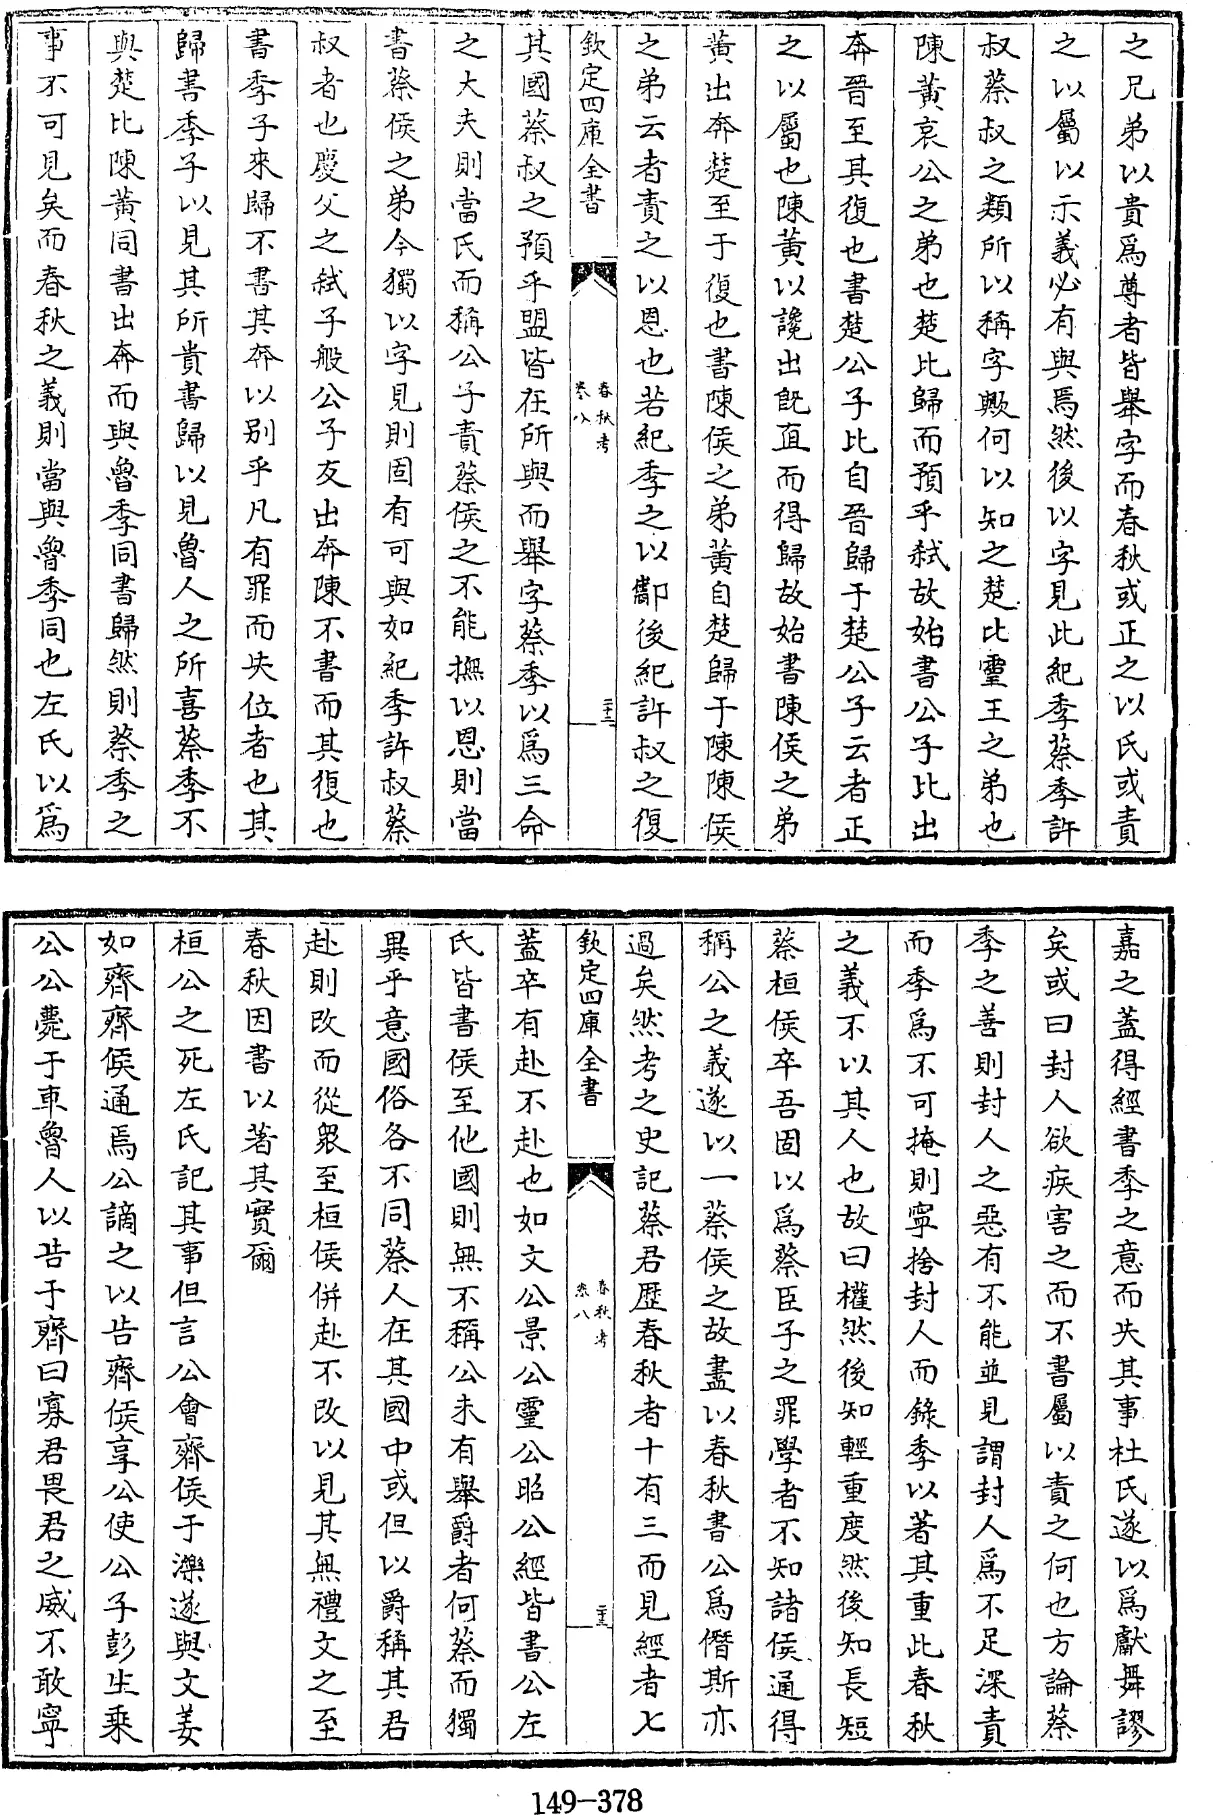 之兄弟以貴爲尊者皆舉字而春秋或正之以氏或責
之以屬以示義必有與焉然後以字見此紀季蔡季許
叔蔡叔之類所以稱字歟何以知之楚比靈王之弟也
陳黃哀公之弟也楚比歸而預乎弑故始書公子比出
奔晉至其復也書楚公子比自晉歸于楚公子云者正
之以屬也陳黃以讒出旣直而得歸故始書陳侯之弟
黃出奔楚至于復也書陳侯之弟黃自楚歸于陳陳侯
之弟云者責之以恩也若紀季之以酅後紀許叔之復
欽定四庫全書
春秋考
卷八
二十二
其國蔡叔之預乎盟皆在所與而舉字蔡季以爲三命
之大夫則當氏而稱公子責蔡侯之不能撫以恩則當
書蔡侯之弟今獨以字見則固有可與如紀季許叔蔡
叔者也慶父之弑子般公子友出奔陳不書而其復也
書季子來歸不書其奔以别乎凡有罪而失位者也其
歸書季子以見其所貴書歸以見魯人之所喜蔡季不
與楚比陳黃同書出奔而與魯季同書歸然則蔡季之
事不可見矣而春秋之義則當與魯季同也左氏以爲
嘉之蓋得經書季之意而失其事杜氏遂以爲獻舞謬
矣或曰封人欲疾害之而不書屬以責之何也方論蔡
季之善則封人之惡有不能並見謂封人爲不足深責
而季爲不可掩則寧捨封人而錄季以著其重此春秋
之義不以其人也故曰權然後知輕重度然後知長短
蔡桓侯卒吾固以爲蔡臣子之罪學者不知諸侯通得
稱公之義遂以一蔡侯之故盡以春秋書公爲僭斯亦
過矣然考之史記蔡君歴春秋者十有三而見經者七
欽定四庫全書
春秋考
卷八
二十三
蓋卒有赴不赴也如文公景公靈公昭公經皆書公左
氏皆書侯至他國則無不稱公未有舉爵者何蔡而獨
異乎意國俗各不同蔡人在其國中或但以爵稱其君
赴則改而從衆至桓侯併赴不改以見其無禮文之至
春秋因書以著其實爾
桓公之死左氏記其事但言公會齊侯于濼遂與文姜
如齊齊侯通焉公謫之以告齊侯享公使公子彭生乗
公公薨于車魯人以告于齊曰寡君畏君之威不敢寧
149-378